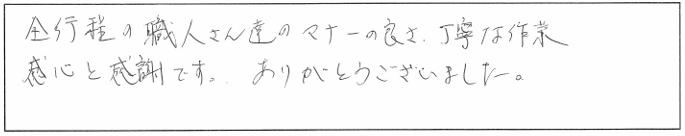 全行程の職人さん達のマナーの良さ、丁寧な作業
感心と感謝です。ありがとうございました。